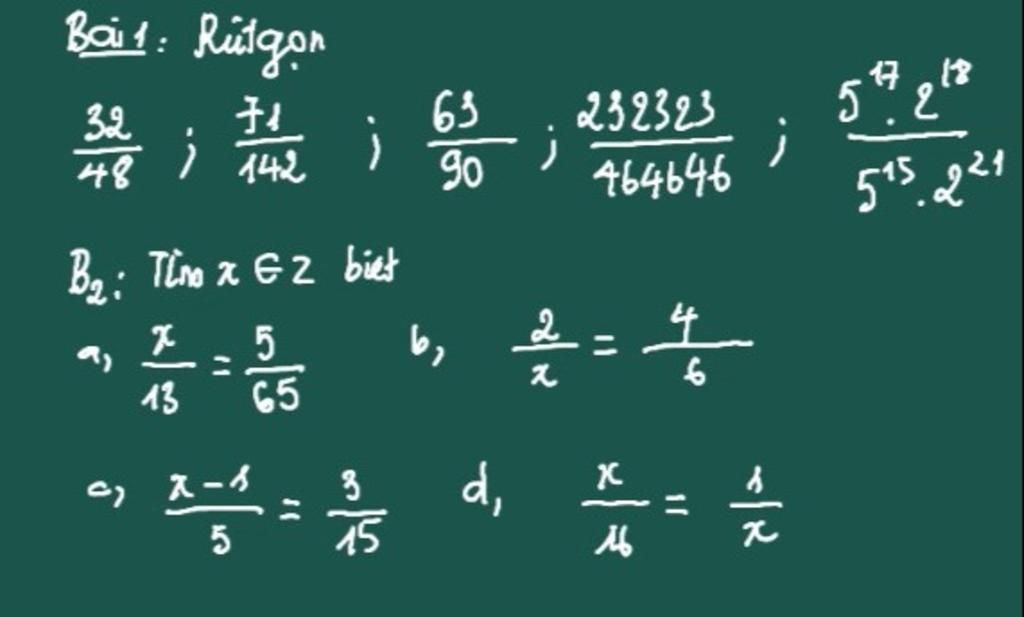 Bài 1: Rút gọn
32/48 ; 71/142 ; 63/90 ; 232323/464646 ; 5^17 . 2^18 / 5^15 . 2^21
B2: Tìm x ∈ Z biết
a, x/13 = 5/65 b, 2/x = 4/6
c, x-1/5 = 3/15 d, x/16 = 1/x